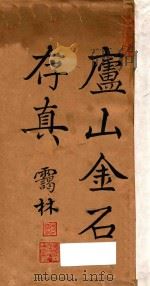 廬山金石
存真
靄林
mtoou.info